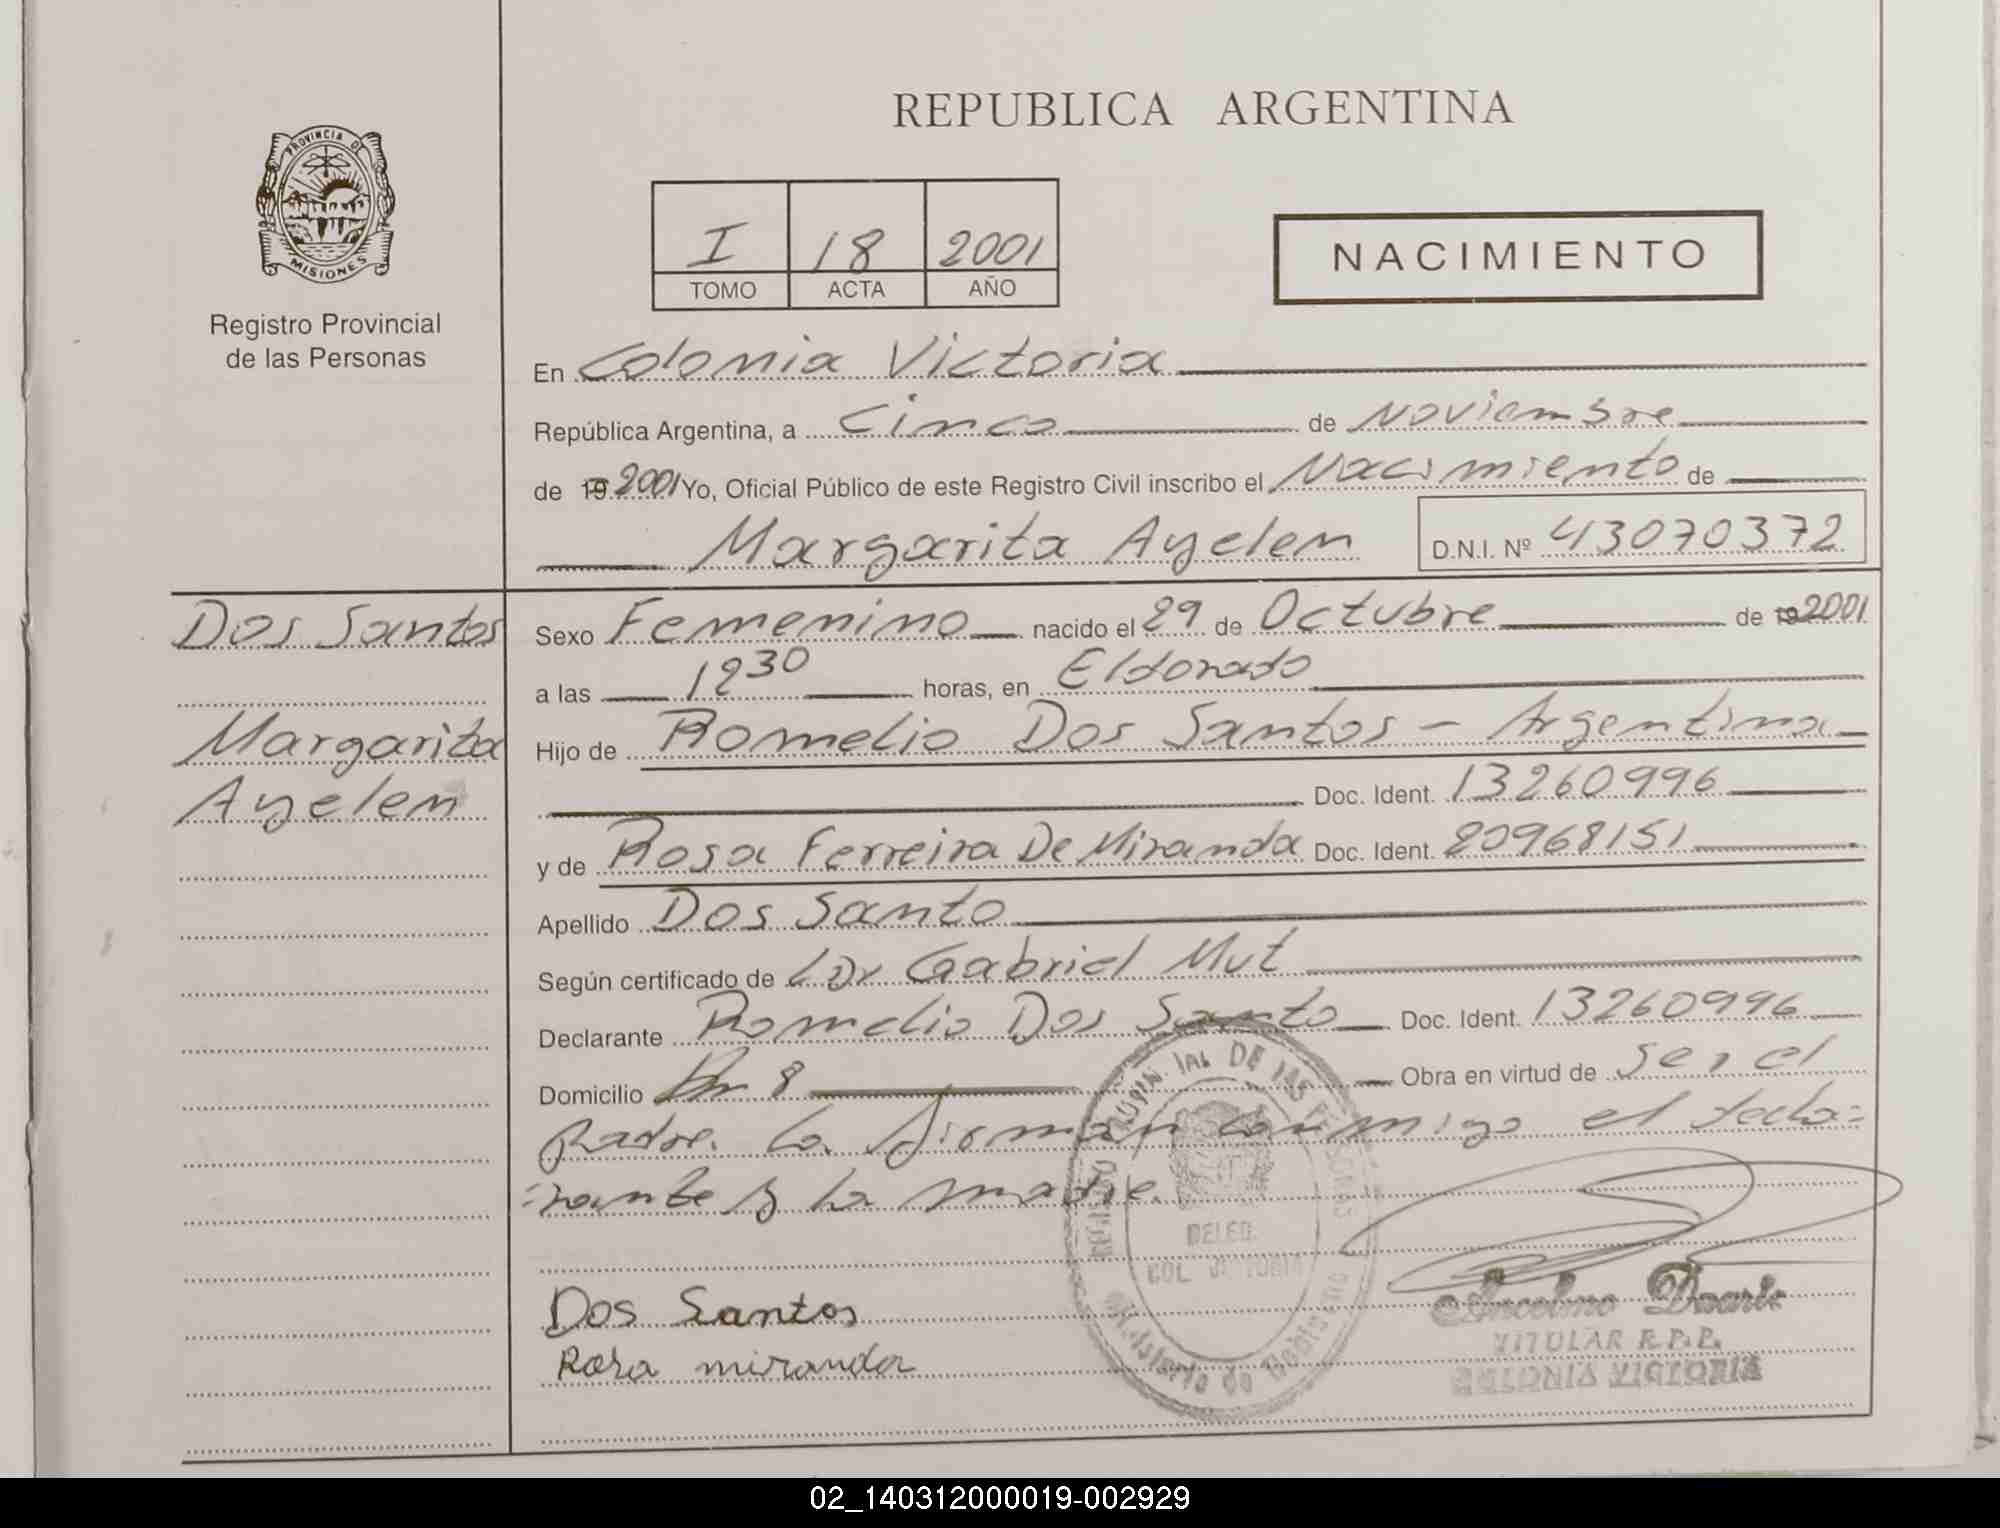 REPUBLICA ARGENTINA
PROVINCIA DE
MISIONES
Registro Provincial
de las Personas
I 18 2001
TOMO ACTA AÑO
NACIMIENTO
En Colonia Victoria
República Argentina, a Cinco de Noviembre
de 19 2001 Yo, Oficial Público de este Registro Civil inscribo el Nacimiento de
Margarita Ayelen D.N.I. Nº 43070372
Dos Santos
Margarita
Ayelen
Sexo Femenino nacido el 29 de Octubre de 19 2001
a las 1230 horas, en Eldorado
Hijo de Romelio Dos Santos - Argentina
Doc. Ident. 13260996
y de Rosa Ferreira De Miranda Doc. Ident. 20968151
Apellido Dos Santo
Según certificado de Gabriel Mut
Declarante Romelio Dos Santo Doc. Ident. 13260996
Domicilio Km 8 Obra en virtud de ser el
padre. La firman conmigo el decla=
=rante y la madre.
DELEG.
COL VICTORIA
Dos Santos
Rosa miranda
Ancelmo Duarte
TITULAR R.P.P.
COLONIA VICTORIA
02_140312000019-002929